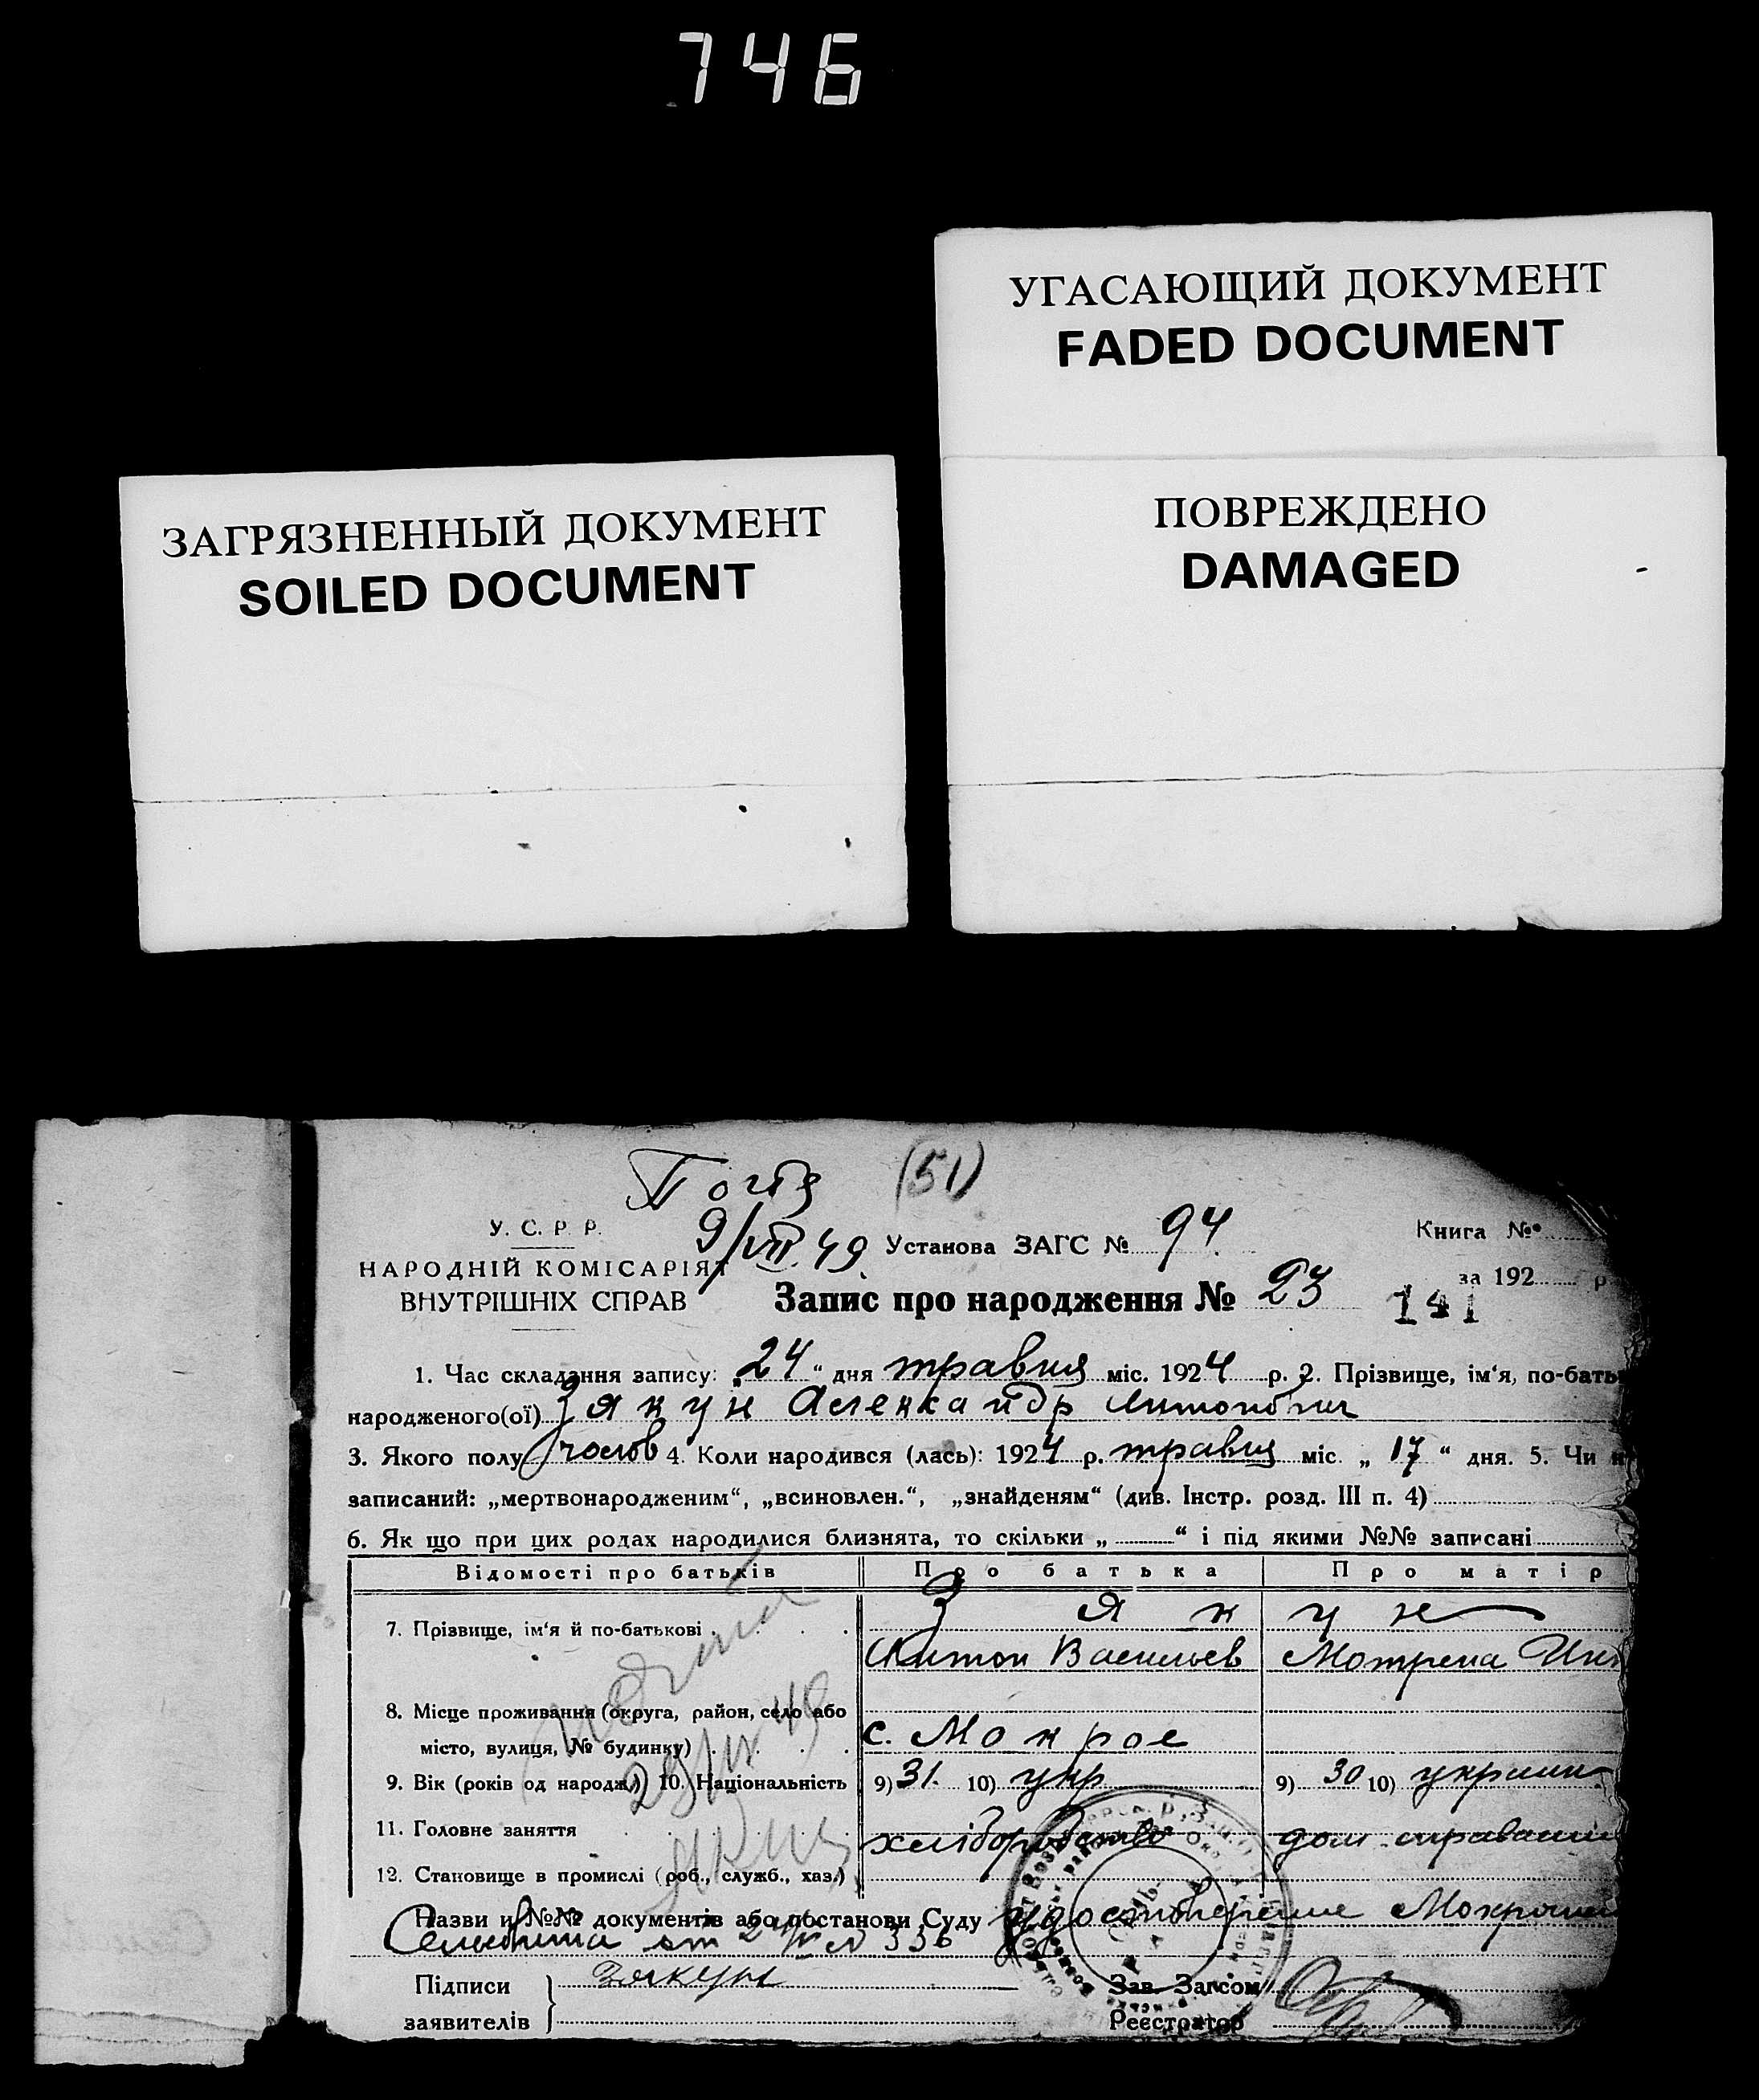 746
УГАСАЮЩИЙ ДОКУМЕНТ
FADED DOCUMENT
ЗАГРЯЗНЕННЫЙ ДОКУМЕНТ
SOILED DOCUMENT
ПОВРЕЖДЕНО
DAMAGED
(51)
У. С. Р. Р.
9/VII 49 Установа ЗАГС № 94
Книга №
НАРОДНІЙ КОМІСАРІЯТ
за 192 р
ВНУТРІШНІХ СПРАВ
Запис про народження № 23
141
1. Час складання запису: „24“ дня травня міс. 1924 р. 2. Прізвище, ім'я, по-бать
народженого(ої) Зякун Александр Антонович
3. Якого полу чолов 4. Коли народився (лась): 1924 р. травня міс. „17“ дня. 5. Чи н
записаний: „мертвонародженим“, „всиновлен.“, „знайденям“ (див. Інстр. розд. III п. 4)
6. Як що при цих родах народилися близнята, то скільки „ “ і під якими №№ записані
Відомості про батьків Про батька Про матір
7. Прізвище, ім'я й по-батькові Зякун
Антон Васильев Мотрена
8. Місце проживання (округа, район, село або
місто, вулиця, № будинку) с. Мокрое
9. Вік (років од народж.) 10. Національність 9) 31. 10) укр 9) 30 10) украин
11. Головне заняття хліборобство дом.
12. Становище в промислі (роб., служб., хаз.)
Назви и №№ документів або постанови Суду удостоверение
от 336
Підписи Зякун Зав. Загсом
заявителів Реєстратор